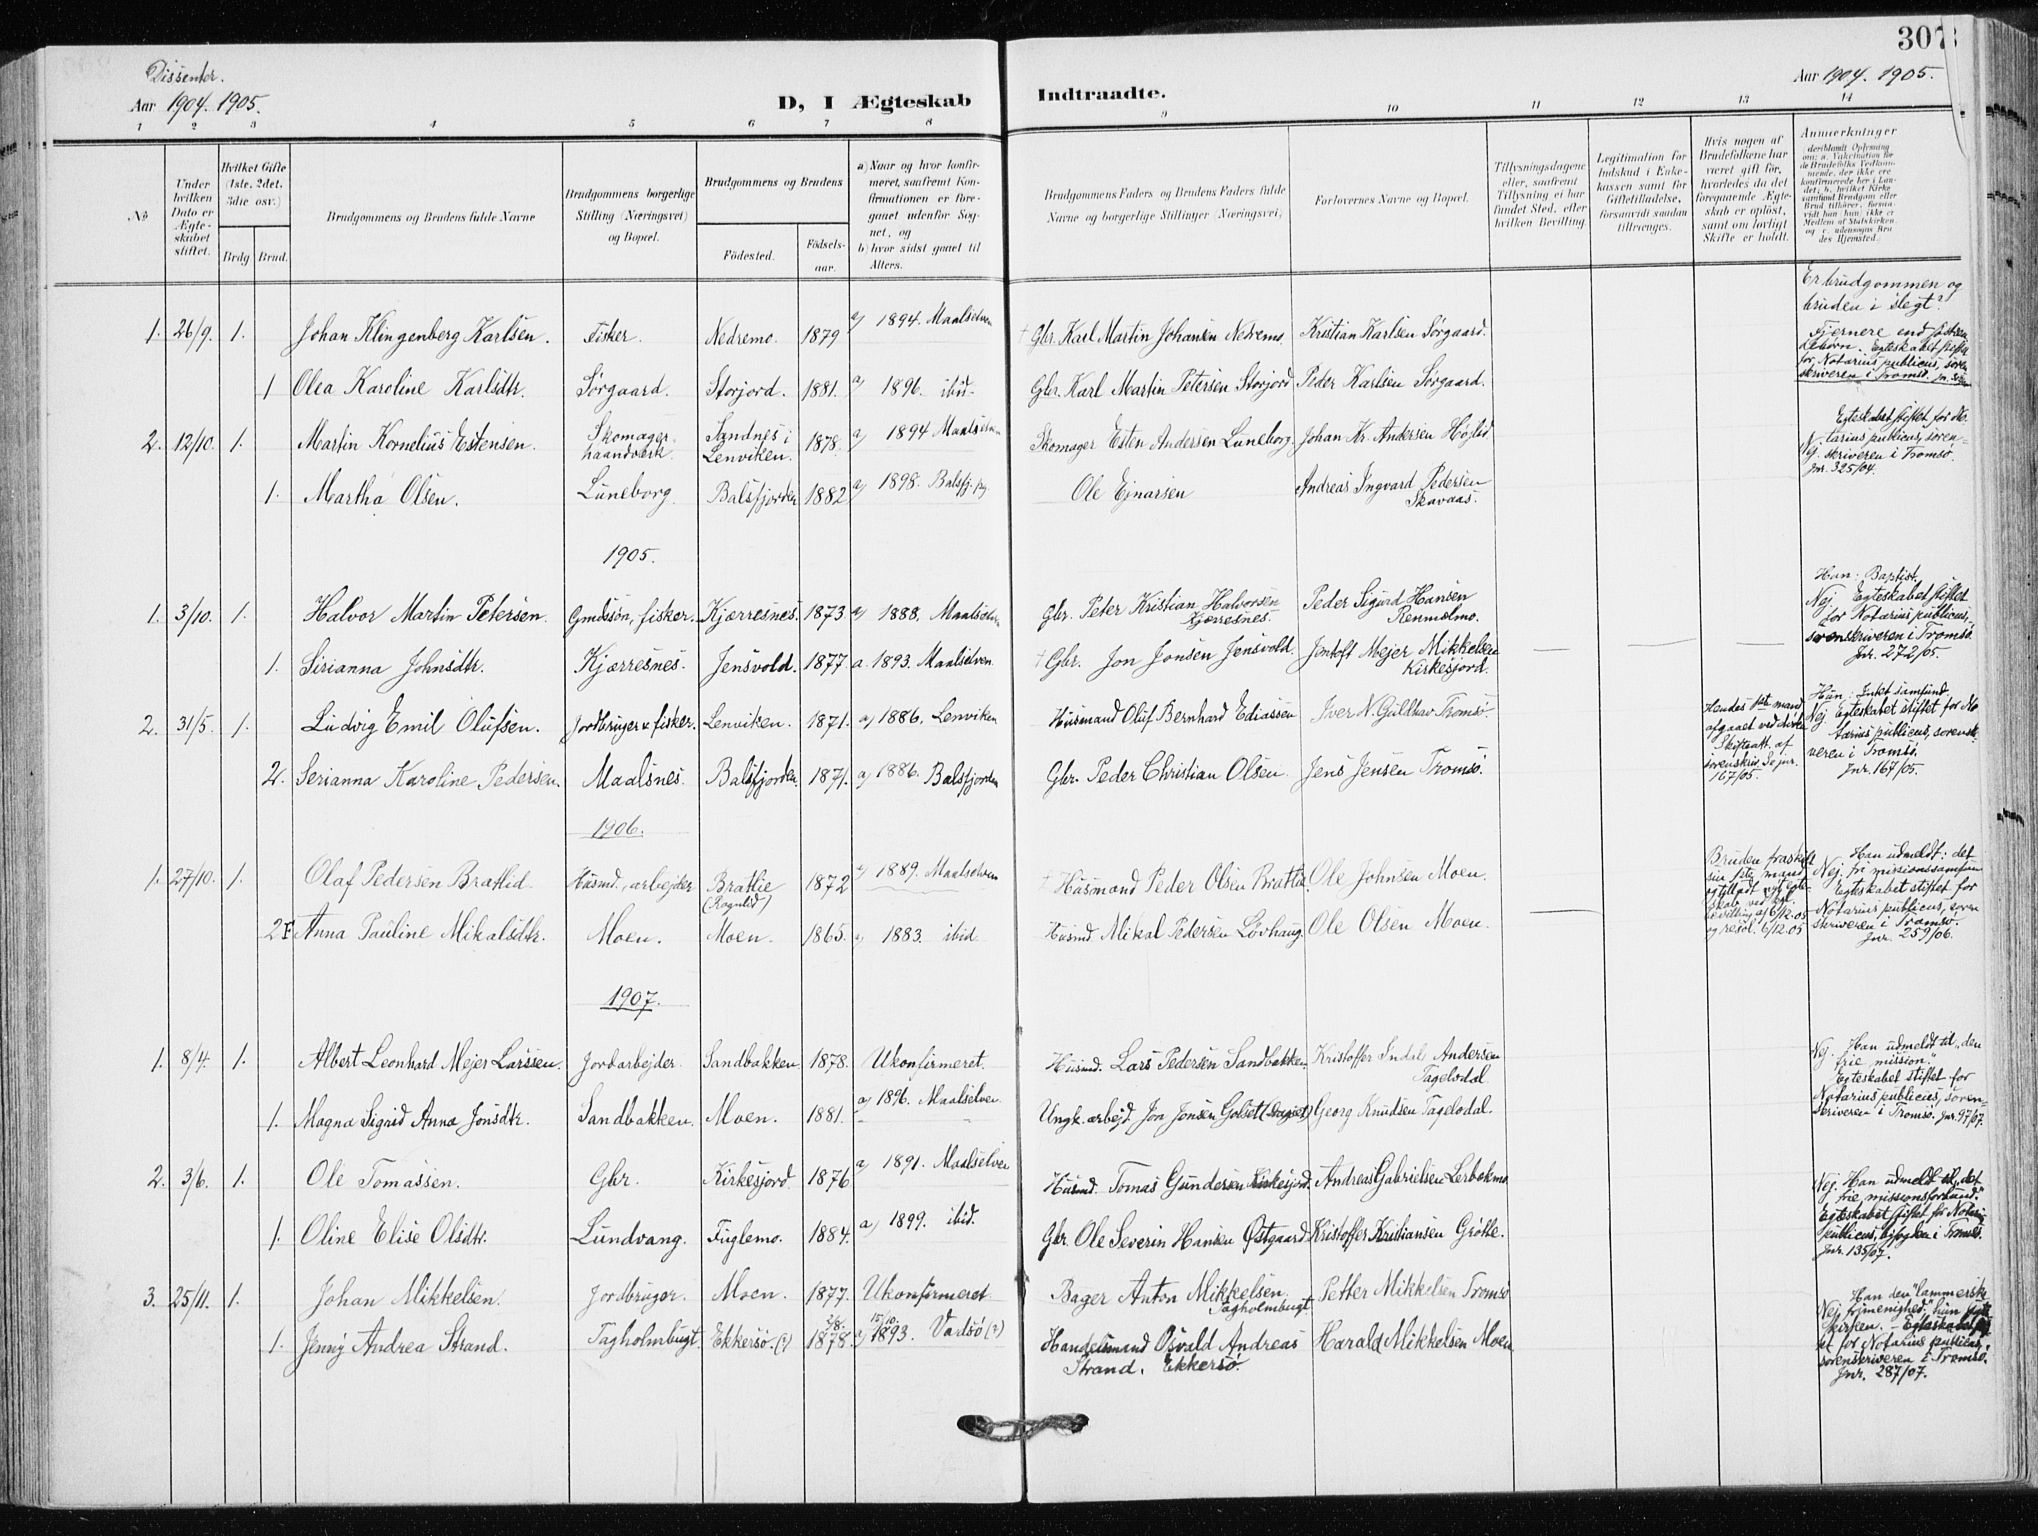 Dissenter.
Aar 1904. 1905.
D, I Ægteskab
Indtraadte.
307
Aar 1904. 1905.
1 2 3 4 5 6 7 8 9 10 11 12 13 14
№
Under hvilken Dato er Ægteskabet stiftet.
Hvilket Gifte (1ste, 2det, 3die osv.)
Brdg. Brud.
Brudgommens og Brudens fulde Navne
Brudgommens borgerlige Stilling (Næringsvei) og Bopæl.
Brudgommens og Brudens
Födested.
Födselsaar.
a) Naar og hvor konfirmeret, saafremt Konfirmationen er foregaaet udenfor Sognet, og
b) hvor sidst gaaet til Alters.
Brudgommens Faders og Brudens Faders fulde Navne og borgerlige Stillinger (Næringsvei).
Forlovernes Navne og Bopæl.
Tillysningsdagene eller, saafremt Tillysning ei har fundet Sted, efter hvilken Bevilling.
Legitimation for Indskud i Enkekassen samt for Giftetilladelse, forsaavidt saadan tiltrænges.
Hvis nogen af Brudefolkene har været gift för, hvorledes da det foregaaende Ægteskab er oplöst, samt om lovligt Skifte er holdt.
Anmærkninger
1. 26/9. 1. Johan Klingenberg Karlsen. Fisker. Nedremo. 1879 a) 1894. Maalselven † Gbr. Karl Martin Johansen Nedremo. Kristian Karlsen Sørgaard.
Er brudgommen og bruden i slegt?
Fjernere end søskendebørn. Egteskabet stiftet for Notarius publicus, sorenskriveren i Tromsø.
1 Olea Karoline Karlsdtr. Sørgaard. Storjord. 1881. a) 1896. ibid. Gbr. Karl Martin Petersen Storjord Peder Karlsen Sørgaard.
2. 12/10. 1. Martin Kornelius Estensen. Skomagerhaandverk. Sandnes i Lenviken. 1878. a) 1894 Maalselven Skomager Esten Andersen Luneborg. Johan Kr. Andersen Højlid
Nej. Egteskabet stiftet for Notarius publicus, sorenskriveren i Tromsø. Jnr. 325/04.
1. Martha Olsen. Luneborg. Balsfjorden 1882 a) 1898. Balsfj. Ole Ejnarsen Andreas Ingvard Pedersen Skavaas.
1905.
1. 3/10. 1. Halvor Martin Petersen. Gmdssøn, fisker. Kjerresnes. 1873. a) 1888. Maalselven Gbr. Peter Kristian Halvorsen Kjærresnes. Peder Sigurd Hansen Renmælmo.
Han: Baptist.
Nej. Egteskabet stiftet for Notarius publicus, sorenskriveren i Tromsø. Jnr. 272/05.
1. Sirianna Johnsdtr. Kjærresnes. Jensvold. 1877. a. 1893. Maalselven. † Gbr. Jon Jonsen Jensvold. Jentoft Mejer Mikkelsen Kirkesjord.
2. 31/5. 1. Ludvig Emil Olufsen. Jordbruger & fisker. Lenviken. 1871. a) 1886. Lenviken Husmand Oluf Bernhard Ediassen Iver N. Guldhav Tromsø.
Hendes 1ste mand afgaaet ved døden Skifteatt. af sorenskriv. Se jnr. 167/05.
Nej Egteskabet stiftet for Notarius publicus, sorenskriveren i Tromsø. Jnr. 167/05.
2. Serianna Karoline Pedersen. Maalsnes. Balsfjorden. 1871. a) 1886. Balsfjorden Gbr. Peder Christian Olsen. Jens Jensen Tromsø.
1906.
1. 27/10. 1. Olaf Pedersen Bratlid. Husmd., arbejder Bratlie 1872 a) 1889. Maalselven † Husmand Peder Olsen Bratlid. Ole Johnsen Moen.
Nej. Han udmeldt: det fri missionssamfun Egteskabet stiftet for Notarius publicus, sorenskriveren i Tromsø. Jnr. 259/06.
2F Anna Pauline Mikalsdtr. Moen. Moen. 1865. a) 1883. ibid Husmd. Mikal Pedersen Løvhaug. Ole Olsen Moen.
1907.
1. 8/4. 1. Albert Leonhard Mejer Larssen. Jordarbejder. Sandbakken. 1878. Ukonfirmeret. Husmd. Lars Pedersen Sandbakken. Kristoffer Indal Andersen Fagelodal.
Nej. Han udmeldt til „den frie mission." Egteskabet stiftet for Notarius publicus, sorenskriveren i Tromsø. Jnr. 97/07.
1. Magna Sigrid Anna Jonsdtr. Sandbakken. Moen. 1881. a) 1896. Maalselven Ungk. arbejd. Jon Jonsen Georg Knudsen Fagelodal.
2. 3/6. 1. Ole Tomassen. Gbr. Kirkesjord 1876 a) 1891. Maalselven Husmd. Tomas Gundersen Kirkesjord. Andreas Gabrielsen Lerbakmo
Nej. Han udmeldt til „det frie missionsforbund." Egteskabet stiftet for Notarius publicus, byfogden i Tromsø. Jnr. 135/07.
1. Oline Elise Olsdtr. Lundvang. Fuglemo. 1884. a) 1899. ibid. Gbr. Ole Severin Hansen Østgaard Kristoffer Kristiansen Grøtte.
3. 25/11. 1. Johan Mikkelsen. Jordbruger. Moen. 1877. Ukonfirmeret Bager Anton Mikkelsen. Fagholmbugt. Petter Mikkelsen Tromsø
Nej Han den "lammerske frimenighed," hun kirken. – Egteskabet for Notarius publicus, sorenskriveren i Tromsø. Jnr. 287/07.
1. Jenny Andrea Strand. Fagholmbugt. Ekkersø. (?) 1878. a) 15/10. 1893. Vadsø (?) Handelsmand Osvald Andreas Strand. Ekkersø. Harald Mikkelsen Moen